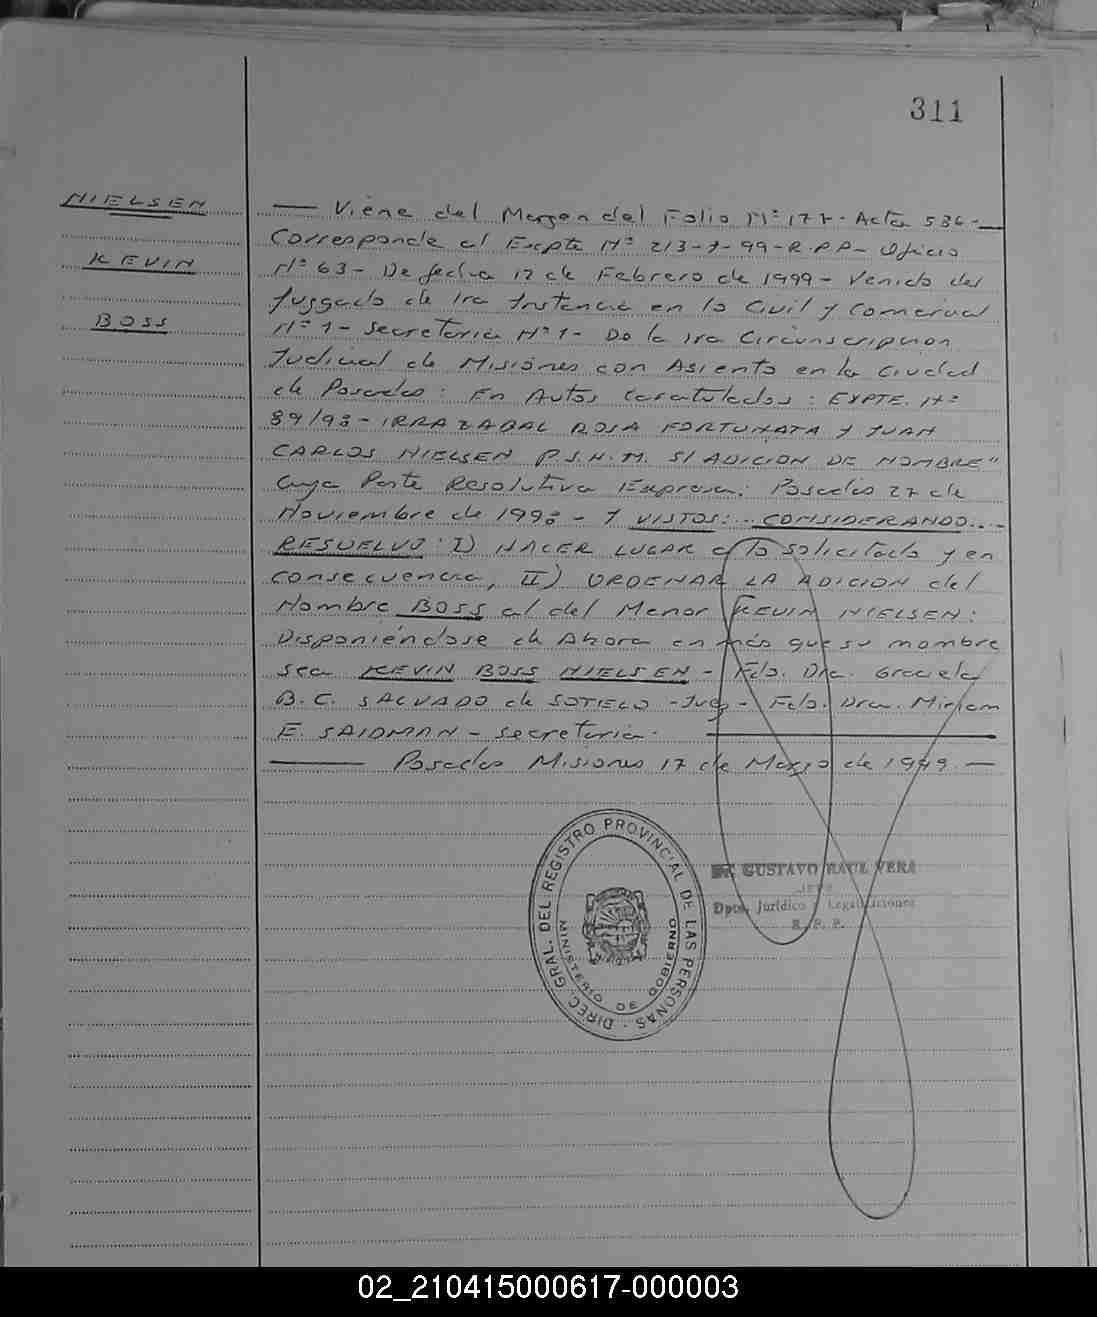 311
NIELSEN
KEVIN
BOSS
— Viene del Margen del Folio Nº 177 - Acta 536 -
Corresponde al Excpte Nº 213-7-99-R.P.P - Oficio
Nº 63 - De fecha 12 de Febrero de 1999 - Venido del
Juzgado de 1ra Instancia en lo Civil y Comercial
Nº 1 - Secretaria Nº 1 - De la 1ra Circunscripcion
Judicial de Misiones con Asiento en la Ciudad
de Posadas: En Autos Caratulados: EXPTE. Nº
89/98 - IRRAZABAL ROSA FORTUNATA y JUAN
CARLOS NIELSEN P.S.H.M. S/ ADICION DE NOMBRE"
Cuya Parte Resolutiva Expresa: Posadas 27 de
Noviembre de 1998 - Y VISTOS:.. CONSIDERANDO...-
RESUELVO: I) HACER LUGAR a lo solicitado y en
consecuencia, II) ORDENAR LA ADICION del
Nombre BOSS al del Menor KEVIN NIELSEN:
Disponiéndose de Ahora en más que su nombre
sea KEVIN BOSS NIELSEN - Fdo. Dra. Graciela
B. C. SALVADO de SOTELO - Juez - Fdo. Dra. Miriam
E. SAIDMAN - Secretaria.
— Posadas Misiones 17 de Marzo de 1999 —
DIREC. GRAL. DEL REGISTRO PROVINCIAL DE LAS PERSONAS
MINISTERIO DE GOBIERNO
GUSTAVO RAUL VERA
JEFE
Dpto. Jurídico y Legalizaciones
R. P. P.
02_210415000617-000003